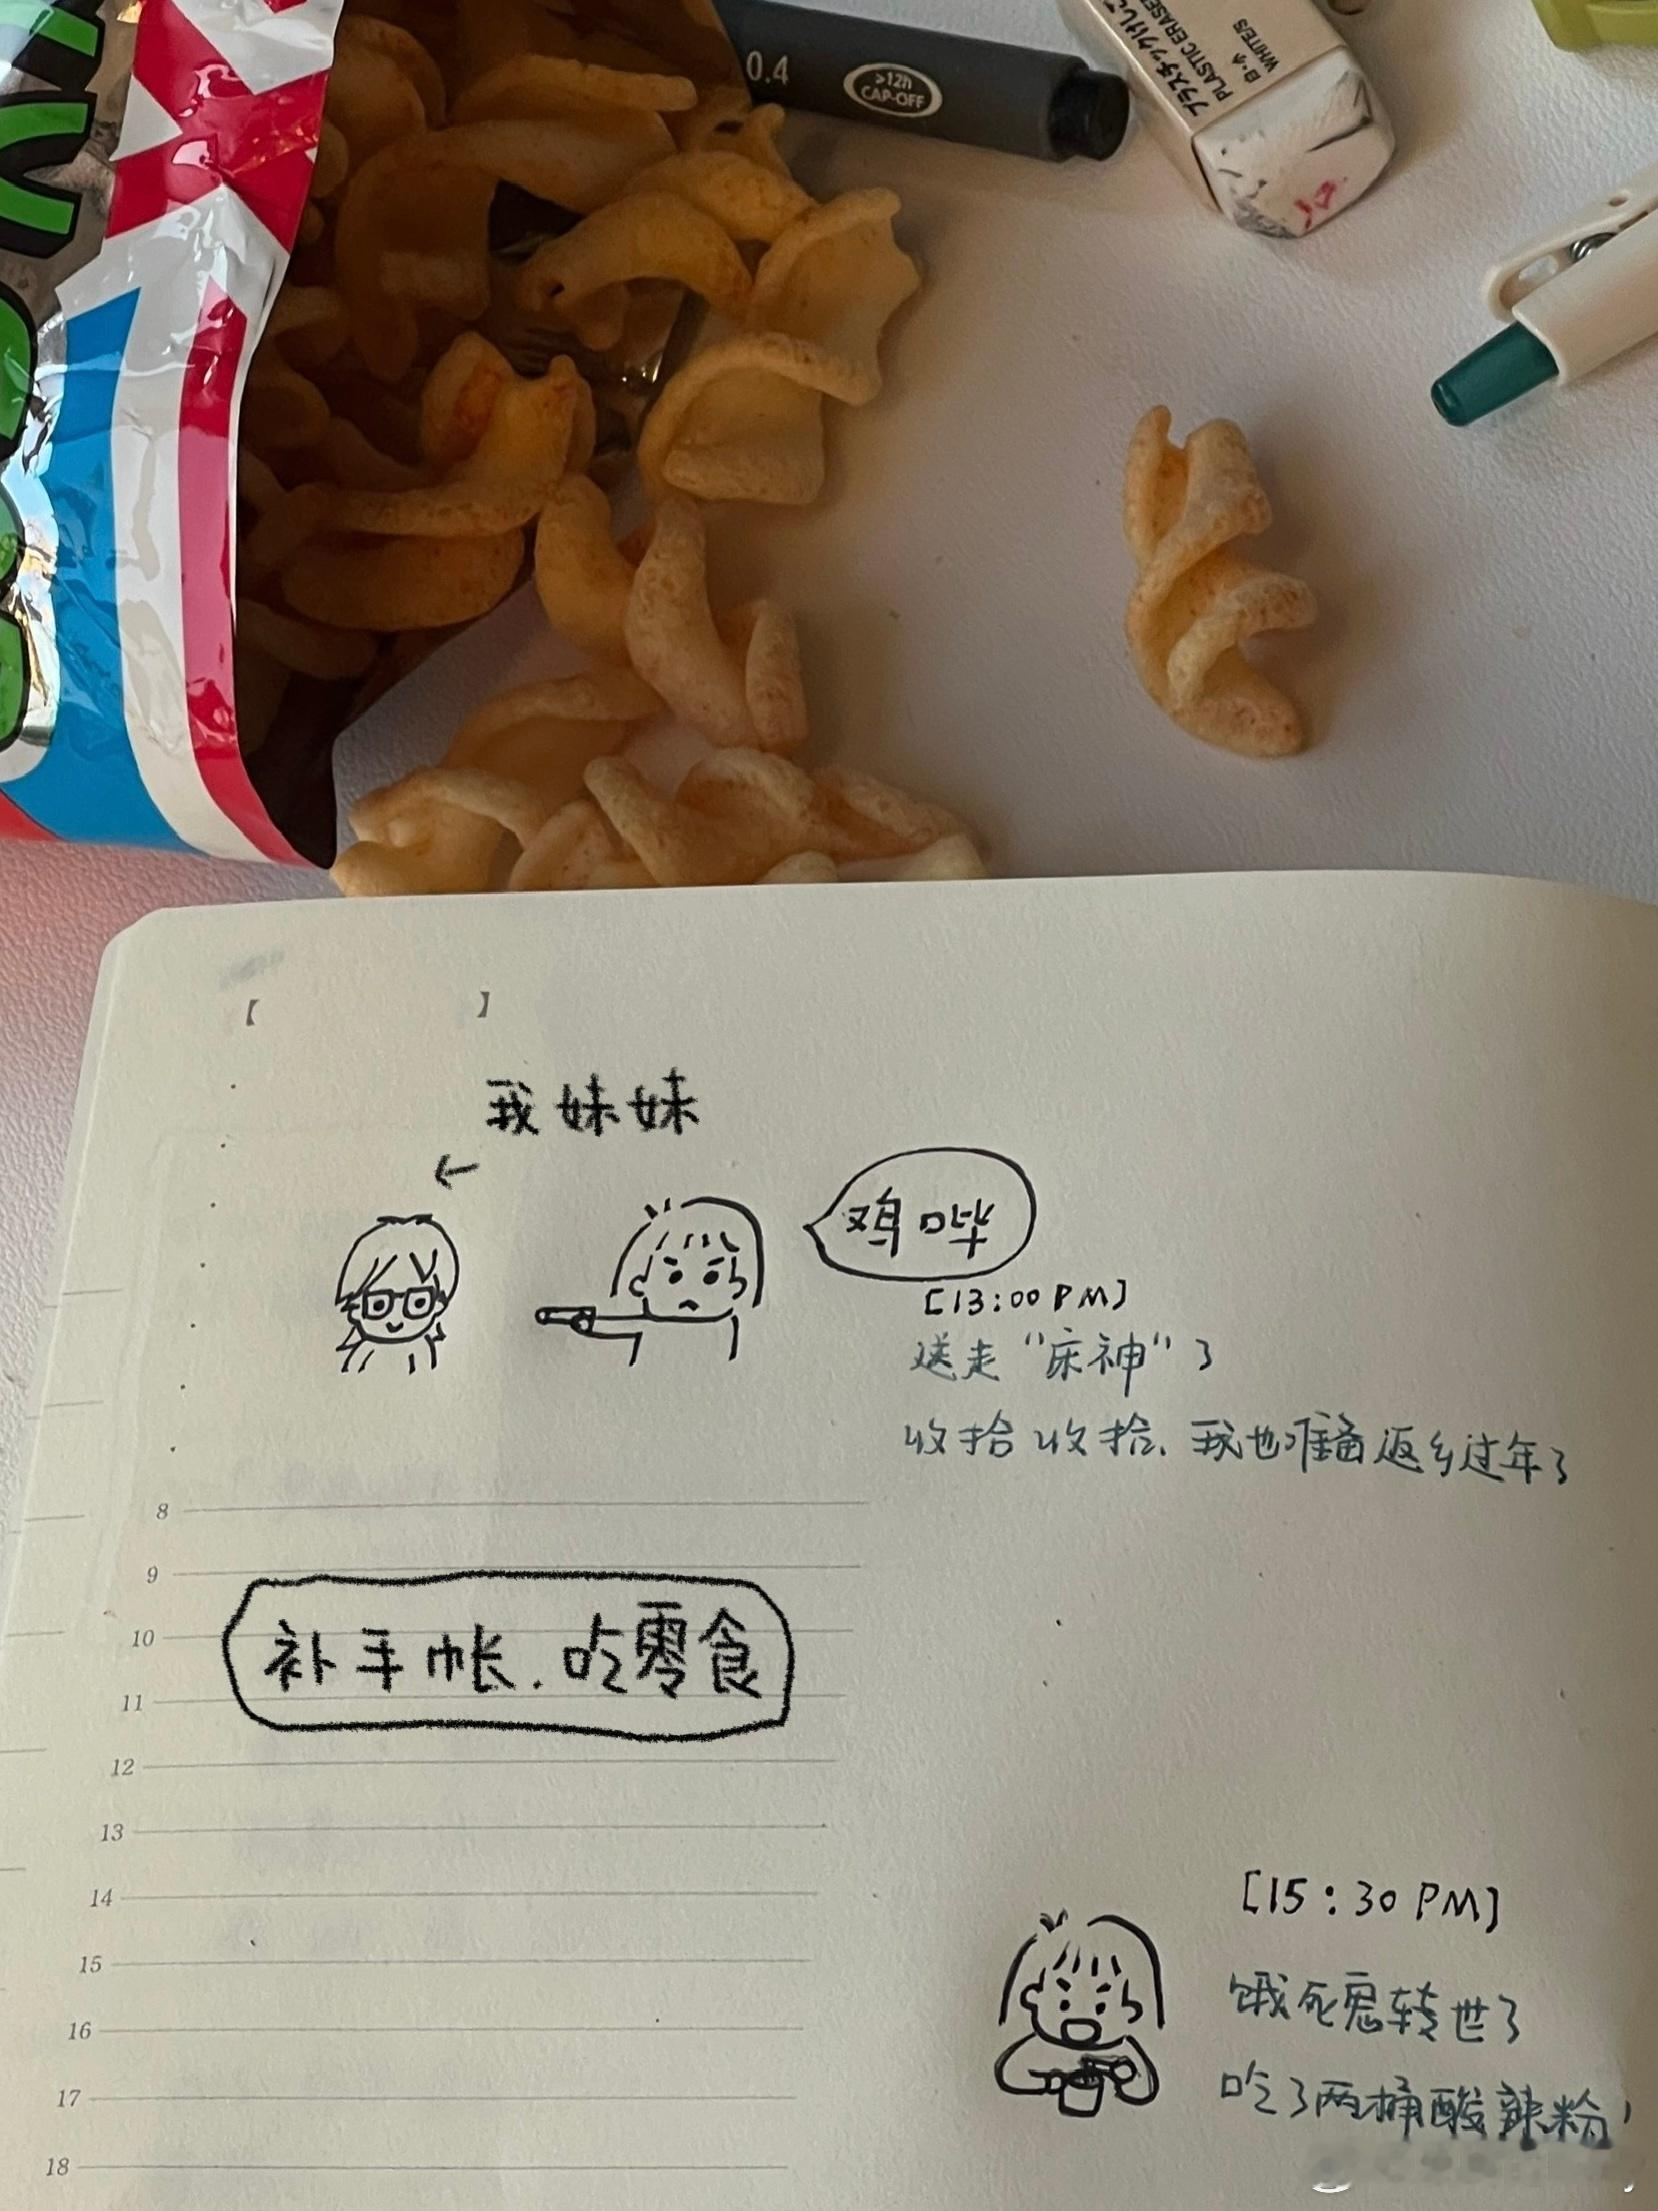 0.4
>12h
CAP-OFF
プラスチックけしご
PLASTIC ERASE
WHITE/S
【 】
我妹妹
←
鸡哔
[13:00 PM]
送走“床神”了
收拾收拾、我也准备返乡过年了
8
9
补手帐.吃零食
10
11
12
13
14
15
16
17
18
[15:30 PM]
饿死鬼转世了
吃了两桶酸辣粉!